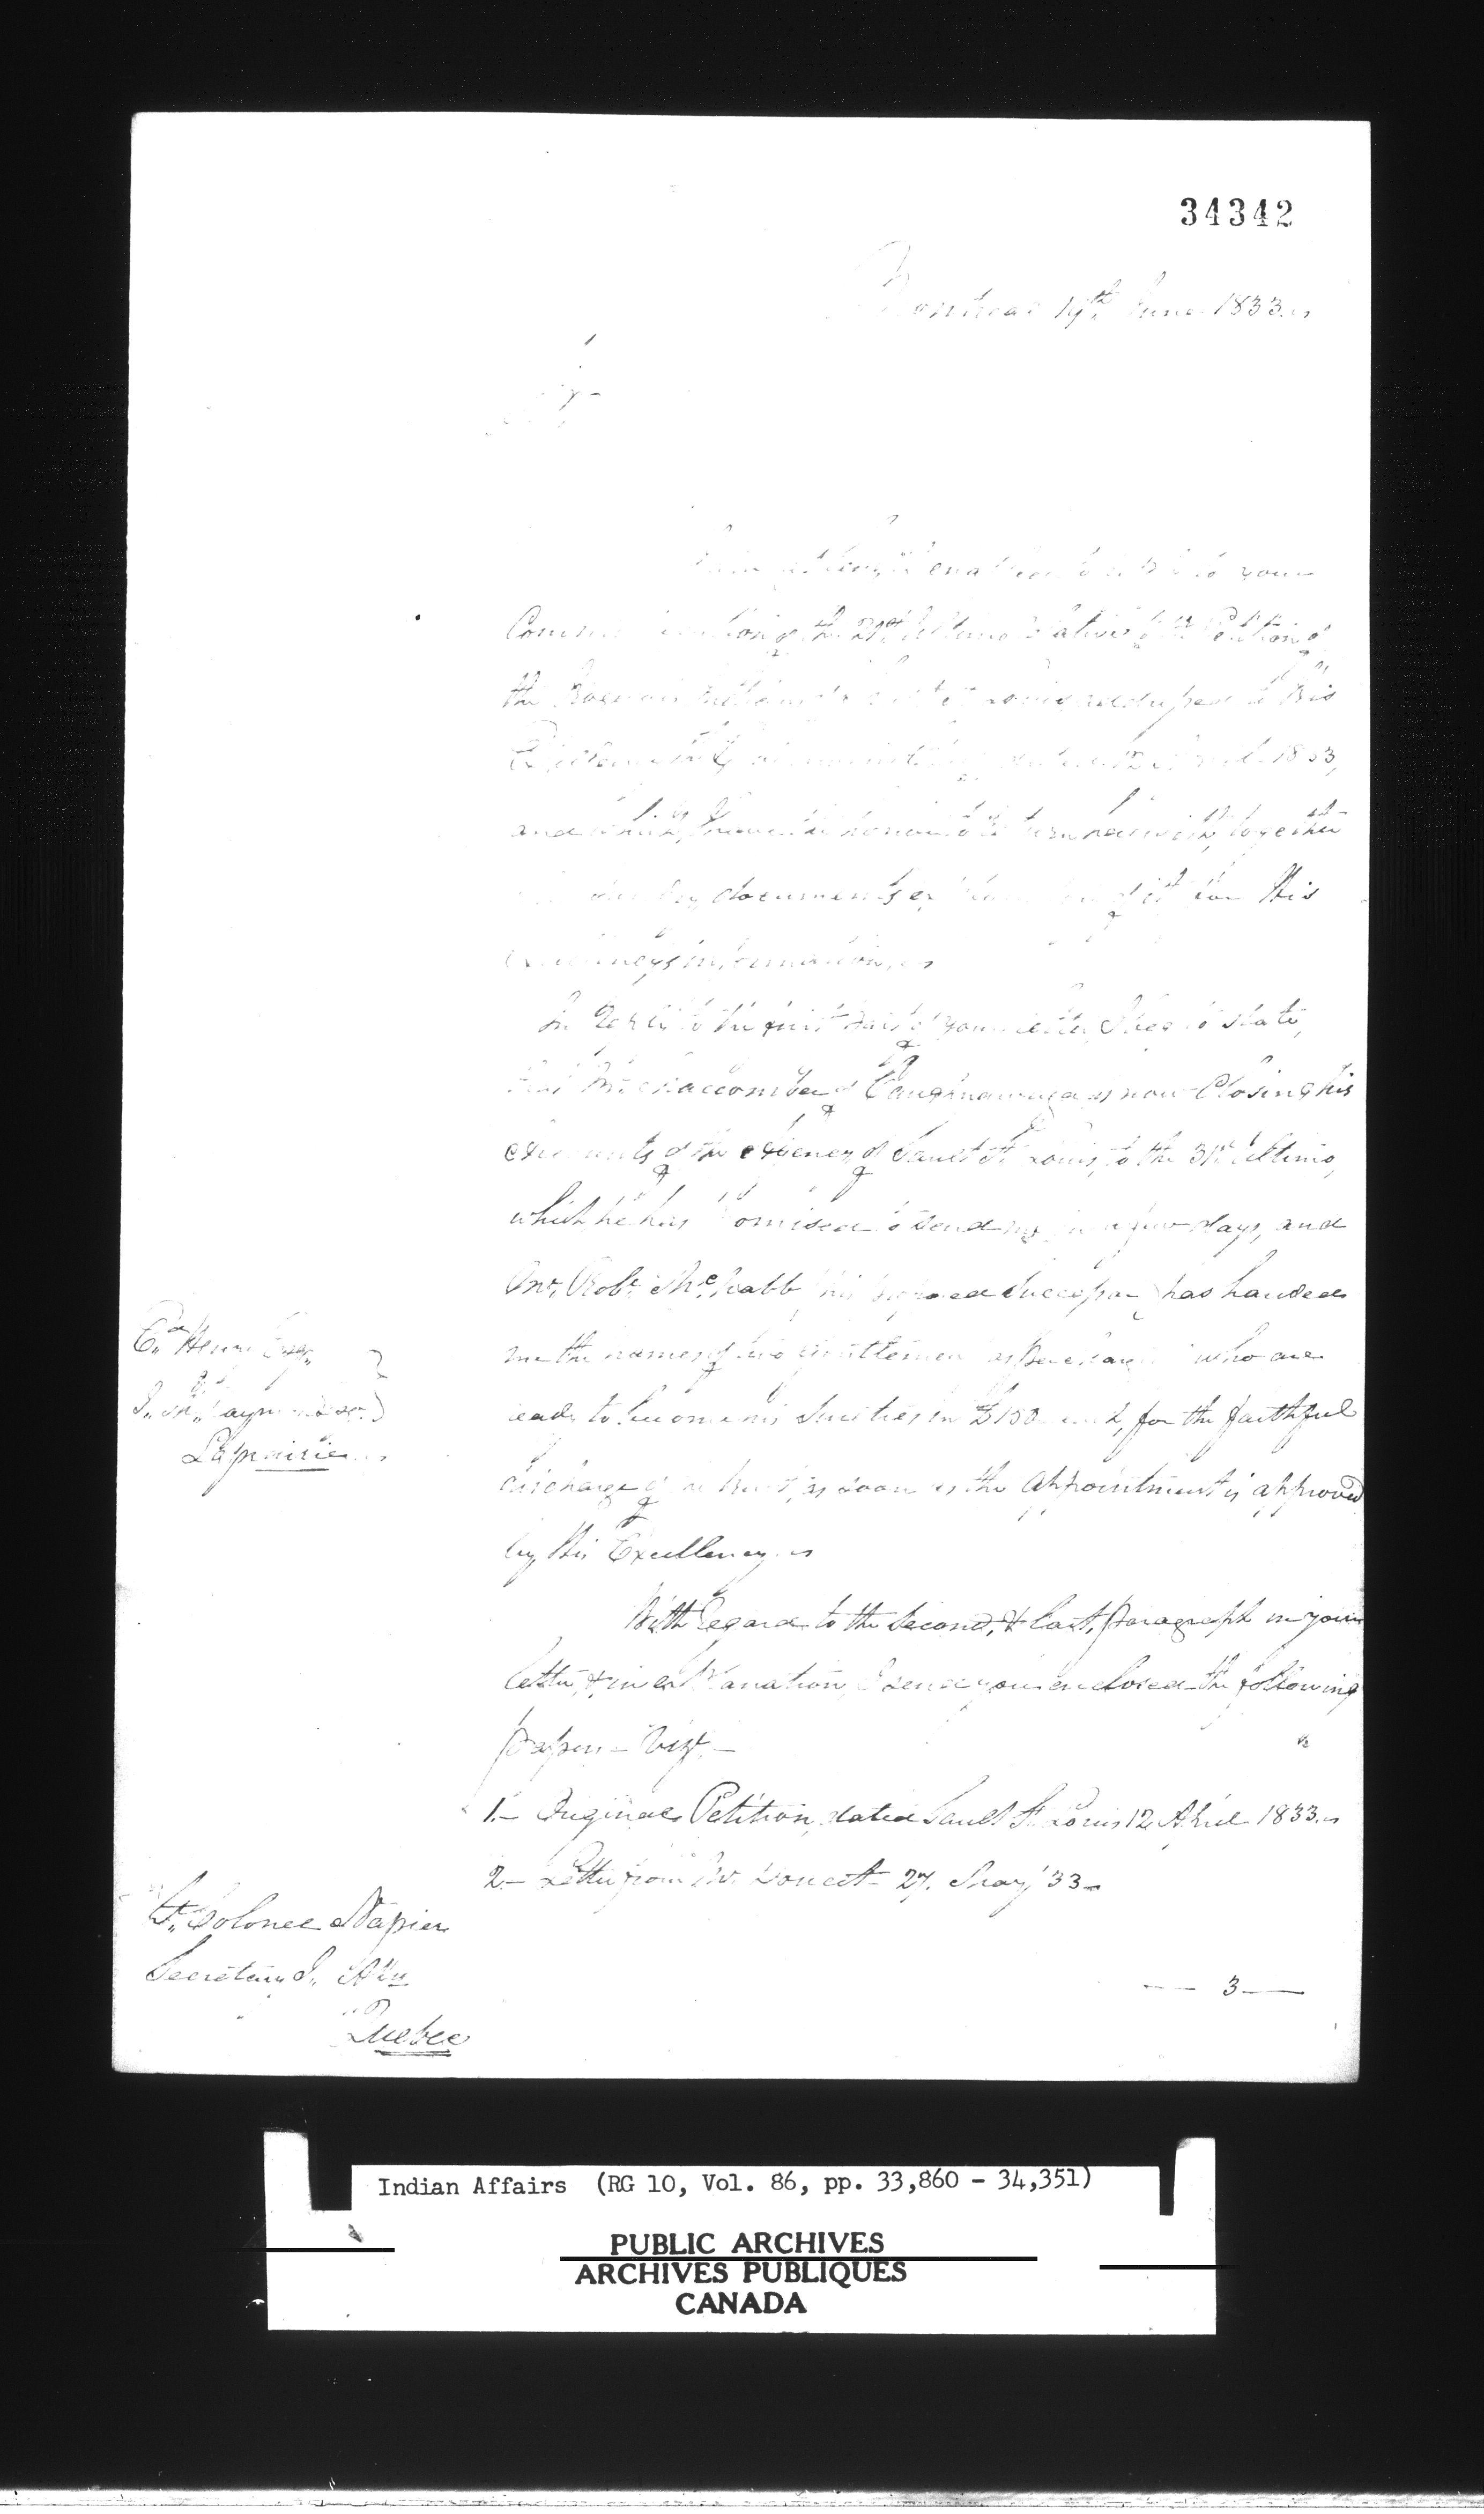 34342
Montreal 19th June 1833
Sir
I am at length enabled to reply to your
Communication of the 21st Ultimo relative to the Petition of
the Iroquois Indians of Sault St Louis addressed to His
Excellency dated 12 April 1833,
and which I have the honor to return herewith, together
documents of it for His
Excellency's information,
In reply to the first part of your letter, I beg to state,
that Mr Maccomber of Caughnawaga is now Closing his
accounts of the Agency of Sault St Louis, to the 31st Ultimo,
which he has promised to send me in a few days, and
Mr. Robt McNabb his proposed Successor has handed
me the names of two gentlemen as per margin who are
ready to become his Sureties in £150 each, for the faithful
discharge of as soon as the appointment is approved
by His Excellency
Ed Henry Esqr
J. M. Raymond Esqr.
Laprairie
With Regard to the Second, & last, paragraph in your
letter, & in explanation, I send you enclosed the following
papers - Vizt. -
1.- Original Petition, dated Sault St Louis 12 April 1833.
2- Letter from Mr Doucet 27. May '33-
Lt. Colonel Napier
Secretary I. Affrs
Quebec
— 3 —
Indian Affairs (RG 10, Vol. 86, pp. 33,860 - 34,351)
PUBLIC ARCHIVES
ARCHIVES PUBLIQUES
CANADA